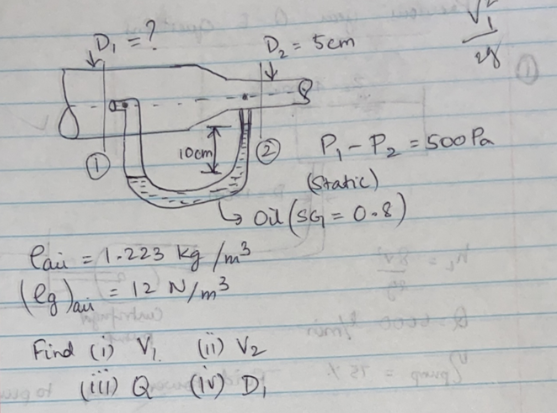 D₁ = ?
D₂ = 5cm
V₁²
2g
①
10cm
②
P₁ - P₂ = 500 Pa
(static)
Oil (SG = 0.8)
ρair = 1.223 kg/m³
(ρg)air = 12 N/m³
Find (i) V₁ (ii) V₂
(iii) Q (iv) D₁